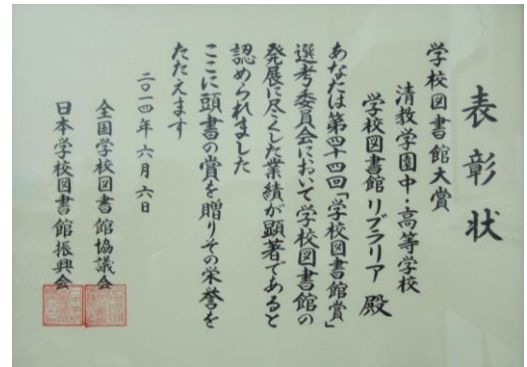 表彰状
学校図書館大賞
清教学園中・高等学校
学校図書館 リブラリア 殿
あなたは第四十四回「学校図書館賞」
選考委員会において学校図書館の
発展に尽くした業績が顕著であると
認められました
ここに頭書の賞を贈りその栄誉を
たたえます
二〇一四年 六月 六日
全国学校図書館協議会
日本学校図書館振興会